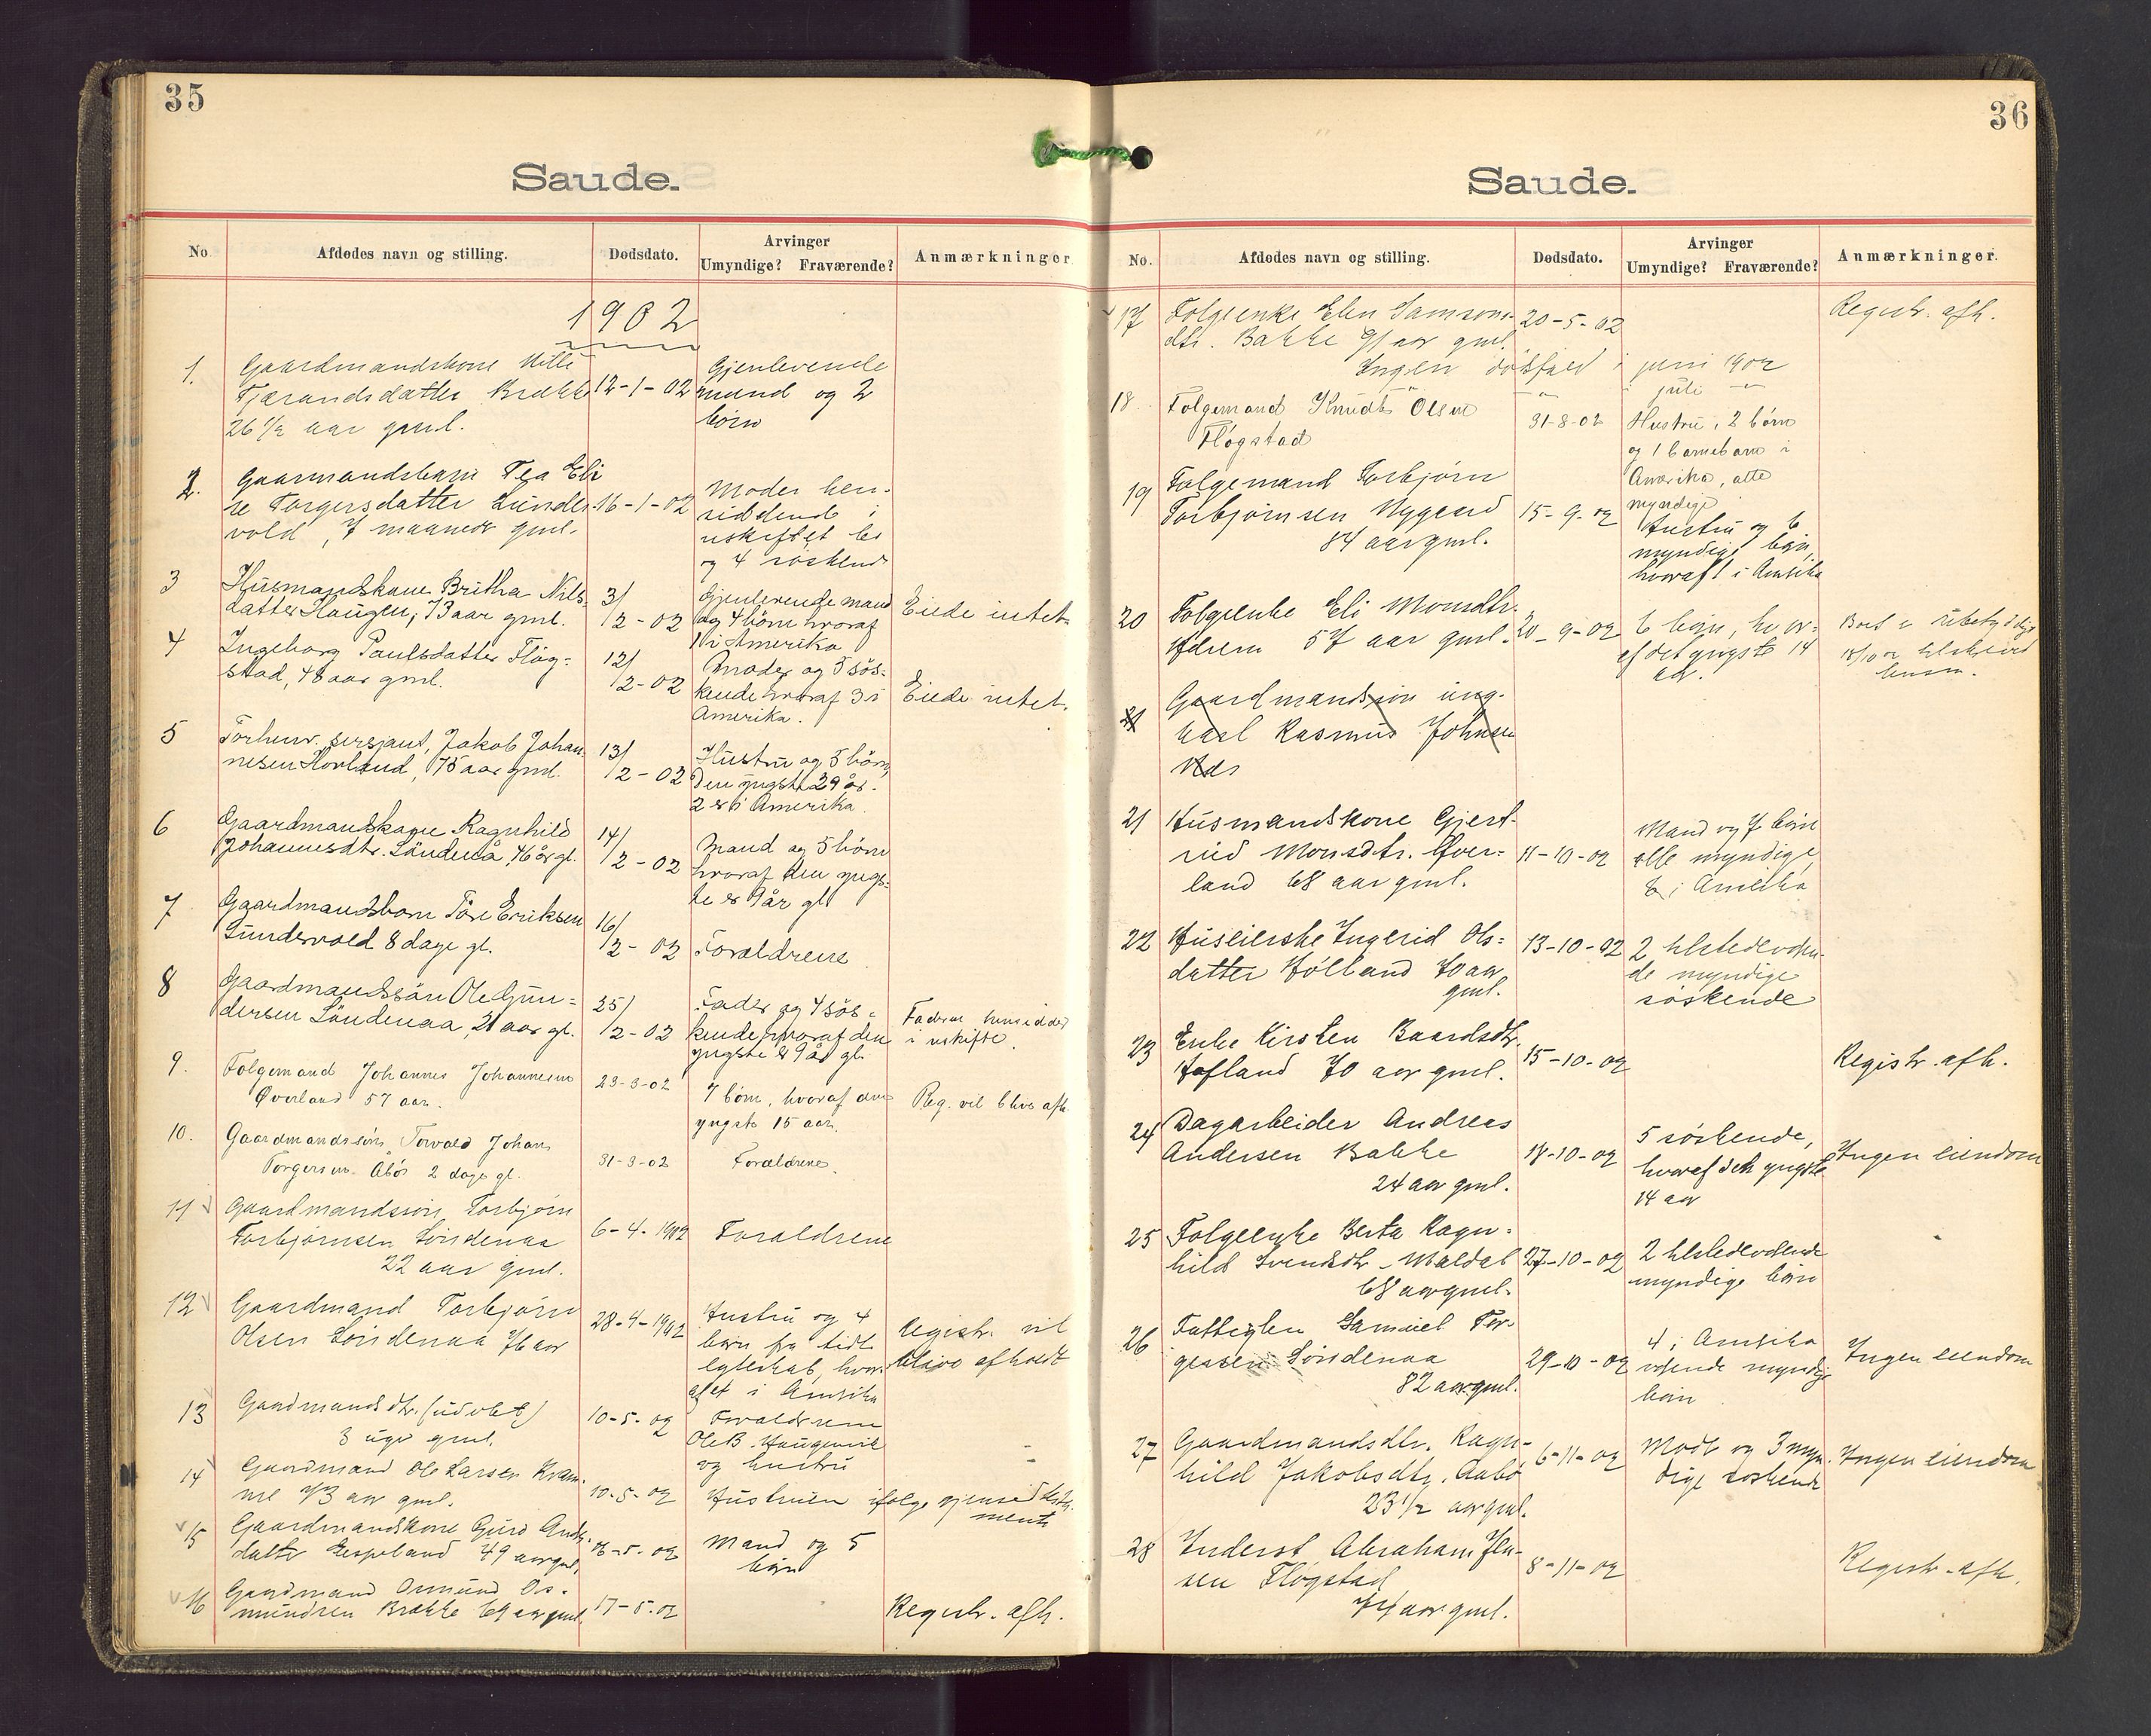 35
Saude.
No
Afdødes navn og stilling.
Dødsdato.
Arvinger
Umyndige? Fraværende?
Anmærkninger
1902
1.
Gaardmandskone
Tjerandsdatter Brække
26 1/2 aar gml.
12-1-02
Gjenlevende
mand og 2
børn
2.
Gaarmandsbarn Tea Eli
se Torgersdatter Lunder
vold, 7 maaneder gml.
16-1-02
Moder hen-
siddende i
uskiftet bo
og 4 søskende
3
Husmandskone Britha Nils-
datter Haugen, 73 aar gml.
3/
/2-02
Gjenlevende mand
og 4 börn hvoraf
1 i Amerika
Eiede intet.
4
Ingeborg Paulsdatter Flög-
stad, 48 aar gml.
12/
/2-02
Moder og 5 sös-
kende hvoraf 3 i
Amerika.
Eiede intet.
5
Forhenv. sersjant, Jakob Johan
nesen Hovland, 75 aar gml.
13/
/2-02
Hustru og 5 börn,
Den yngste 29 år.
2 er i Amerika.
6
Gaardmandskone Ragnhild
Johannesdtr. Söndenå, 46 år gl.
14/
/2-02
Mand og 5 börn
hvoraf den yngs-
te er 9 år gl
7
Gaardmandsbarn Tore Eriksen
Lundervold 8 dage gl.
16/
/2-02
Forældrene
8
Gaardmandssön Ole Gun-
dersen Söndenaa, 21 aar gl.
25/
/2-02
Fader og 4 sös-
kende hvoraf den
yngste er 9 år gl.
Faderen hensidder
i uskifte.
9.
Folgemand Johannes Johannesen
Øverland 57 aar.
23-3-02
7 børn, hvoraf den
yngste 15 aar.
Reg. vil blive afh.
10.
Gaardmandssøn Torvald Johan
Torgersen Åbø 2 dage gl.
31-3-02
Forældrene.
11
Gaardmandssøn Torbjørn
Torbjørnsen Søndenaa
22 aar gml.
6-4-1902
Forældrene
12
Gaardmand Torbjørn
Olsen Søndenaa 76 aar
28-4-1902
Hustru og 4
børn fra tidl
egteskab, hvor-
af et i Amerika
Registr. vil
blive afholdt
13
Gaardmandsdtr. (udøbt)
3 uger gml.
10-5-02
Forældrene
Ole B. Haugevik
og hustru
14
Gaardmand Ole Larsen Kvam-
me 73 aar gml.
10-5-02
Hustruen ifølge gjensid. testa-
mente
15
Gaardmandskone Guro Ands-
datter Espeland 49 aar gml.
16-5-02
Mand og 5
børn
16
Gaardmand Osmund Os-
mundsen Brække 69 aar gml.
17-5-02
Registr. afh.
36
Saude.
No.
Afdødes navn og stilling.
Dødsdato.
Arvinger
Umyndige? Fraværende?
Anmærkninger.
17
Folgeenke Elen Samsons-
dtr. Bakke 91 aar gml.
20-5-02
Registr. afh.
Ingen dødsfald i juni 1902
- " - juli - " -
18.
Folgemand Knudt Olsen
Fløgstad
31-8-02
Hustru, 2 børn
og 1 barnebarn i
Amerika, alle
myndige
19
Folgemand Torbjørn
Torbjørnsen Nygaard
84 aar gml.
15-9-02
Hustru og 6
myndige børn,
hvoraf 1 i Amerika
20
Folgeenke Eli Monsdtr.
57 aar gml.
20-9-02
6 børn, hvor-
af det yngste 14
aar.
Boet er ubetydeligt
21
Gaardmandssøn ung-
karl Rasmus Johnsen
21
Husmandskone Gjert-
rud Monsdtr. Over-
land 68 aar gml.
11-10-02
Mand og 7 børn
alle myndige,
6 i Amerika
22
Huseierske Ingerid Ols-
datter Hølland 70 aar
gml.
13-10-02
2 tilstedeværen-
de myndige
søskende
23
Enke Kirsten Baardsdtr.
Hofland 70 aar gml.
15-10-02
Registr. afh.
24
Dagarbeider Andreas
Andersen Bakke
24 aar gml.
18-10-02
5 søskende,
hvoraf den yngste
14 aar
Ingen eiendom
25
Folgeenke Berta Ragn-
hild Svendsdtr. Maldal
68 aar gml.
27-10-02
2 tilstedeværende
myndige børn
26
Fattiglem Samuel Tor-
gersen Søndenaa
82 aar gml.
29-10-02
4 i Amerika
værende myndige
børn
Ingen eiendom
27
Gaardmandsdtr. Ragn-
hild Jakobsdtr. Aabø
23 1/2 aar gml.
6-11-02
Moder og 3 myn-
dige søskende
Ingen eiendom
28
Inderst Abraham
sen Fløgstad
77 aar gml.
8-11-02
Registr. afh.